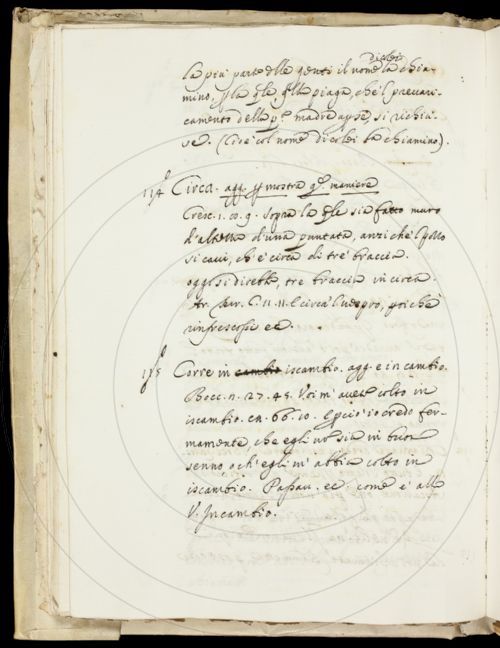 di colei
la più parte delle genti il nome la chia-
mino, p la qle qlla piaga, che 'l prevari-
camento della pa. madre aperse, si richiu-
se. (Cioè col nome di colei la chiamino).
114 Circa. agg. p mostra qe. maniere
Cresc. 1. 10. 9. Sopra la qle sia fatto muro
d'altezza d'una puntata, anzi che 'l pollo
si cavi, ch'è circa di tre braccia.
oggi si direbbe, tre braccia in circa.
n. 11. E circa l'
rinfrescossi ec.
115 Corre in cambio iscambio. agg. e in cambio.
Bocc. n. 27. 45. Voi m'avete colto in
iscambio. e n. 66. 10. E pciò io credo fer-
mamente, che egli nō sia in buon
senno, o ch'egli m'abbia colto in
iscambio. Passav. ec. come è alla
V. Incambio.